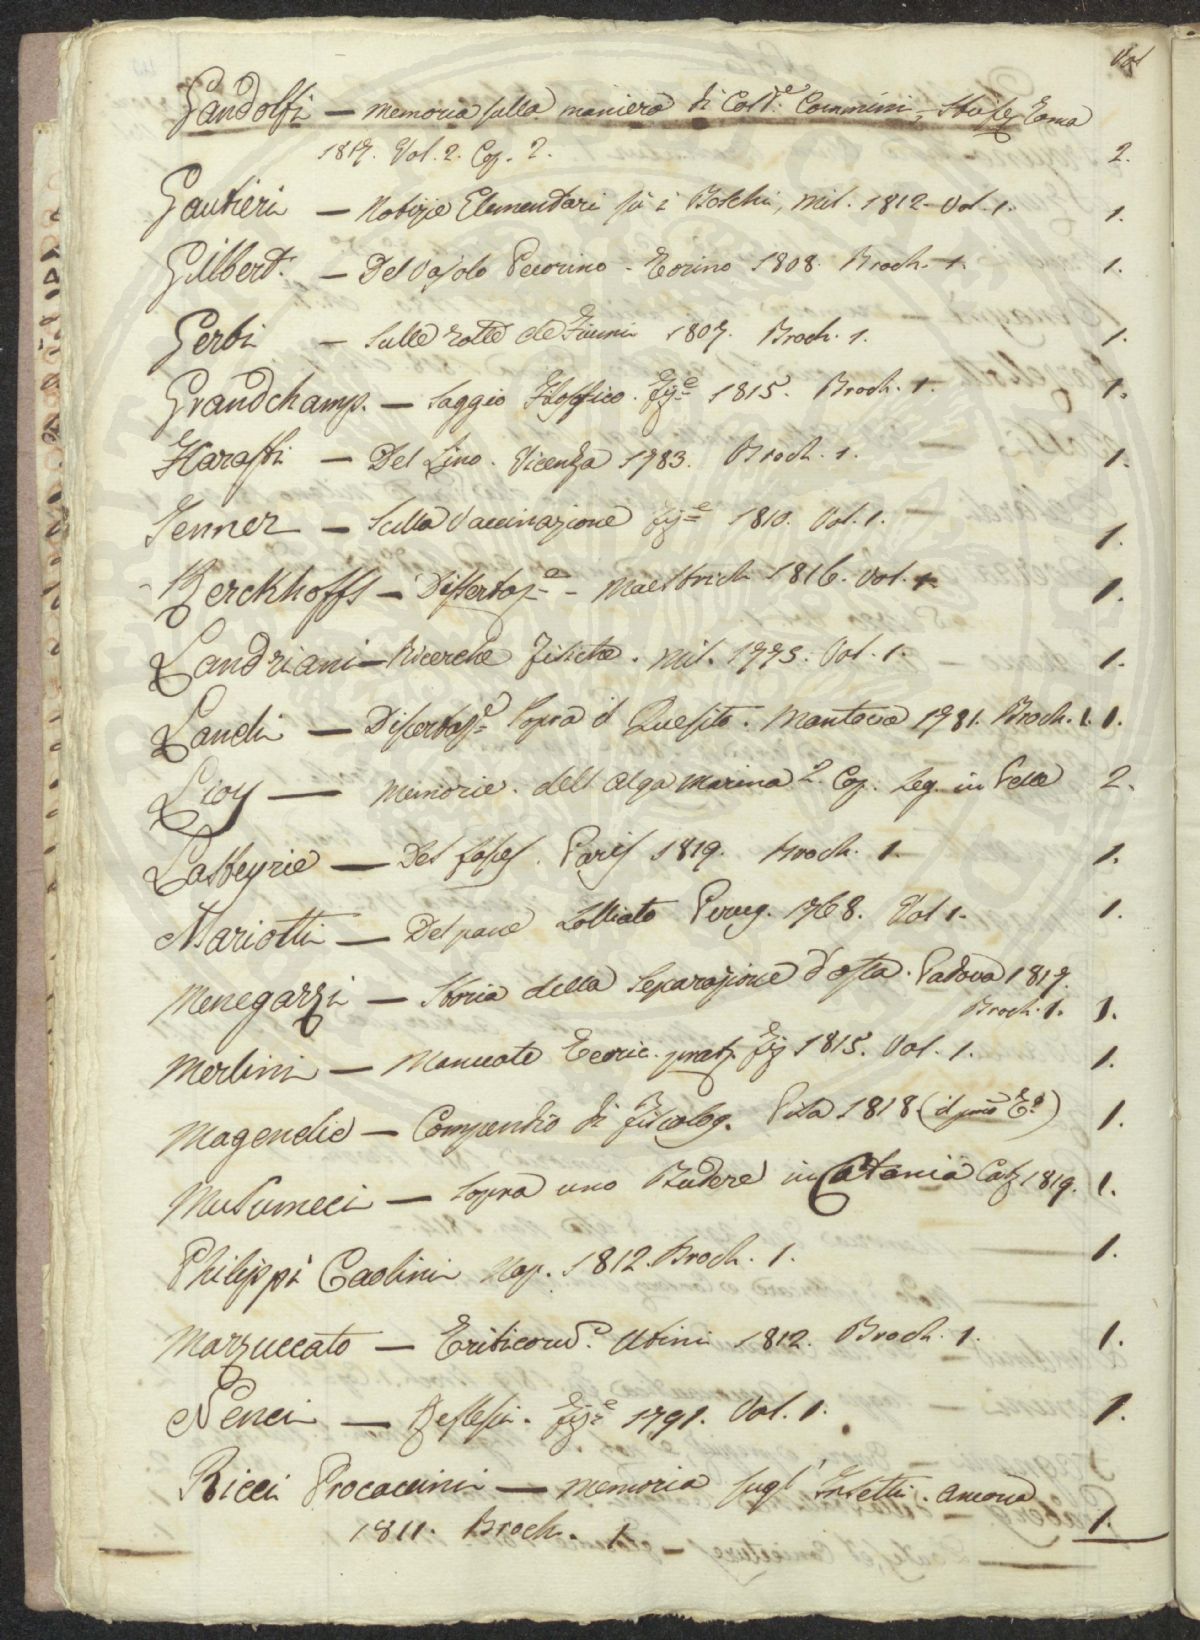 Vol
Gandolfi — Memoria sulla maniera di Cost.e Cammini, Stufe, Roma
1817. Vol. 2. Cop. 2. 2.
Gautieri — Notizie Elementari sù i Boschi, Mil. 1812. Vol. 1. 1.
Gilbert. — Del Vajolo Pecorino - Torino 1808. Broch. 1. 1.
Gerbi — Sulle rotte de Fiumi 1807. Broch. 1. 1.
Grandchamp. — Saggio Filosofico. Fir.e 1815. Broch. 1. 1.
Harasti — Del Lino. Vicenza 1783. Broch. 1. 1.
Jenner — Sulla Vaccinazione 1810. Vol. 1. 1.
Kerckhoffs — Dissertaz.e - Maestrich 1816. Vol. 1. 1.
Landriani — Ricerche Fisiche. Mil. 1775. Vol. 1. 1.
Landi — Dissertaz.e Sopra il Quesito. Mantova 1781. Broch. 1. 1.
Lioy — Memorie. dell alga marina 2. Cop. Leg. in Pelle 2.
Lasteyrie — Des fosses. Paris 1819. Broch. 1. 1.
Mariotti — Del pane Lolliato Perug. 1768. Vol 1. 1.
Menegazzi — Storia della Separazione d'ossa. Padova 1817.
Broch. 1. 1.
Merlini — Manuale Teoric. prat. 1815. Vol. 1. 1.
Magendie — Compendio di Fisiolog. Pisa 1818 (il pmo To) 1.
Musumeci — Sopra uno Rudere in Catania Cat. 1819. 1.
Philippi Caolini Nap. 1812. Broch. 1. 1.
Mazzuccato — Triticorum. Utini 1812. Broch. 1. 1.
Nenci — Riflessi. Fir.e 1791. Vol. 1. 1.
Ricci Procaccini — Memoria sugl' Insetti. Ancona
1811. Broch. 1. 1.